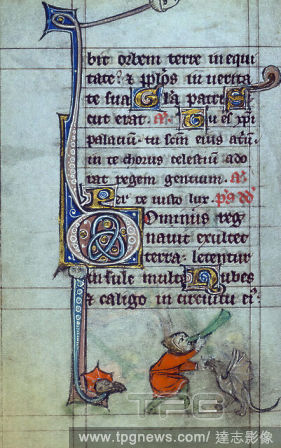 bit orbem terre in equi
tate: & pp̃los in uerita
te sua Gl̃a patri S
cut erat. a. Tu es xp̃i
palaciũ. tu sc̃m eius atriũ.
in te chorus celestiũ ado
rat regem gentium. a.
Per te iusto lux. ps dd
Dominus reg
nauit exultet
terra: letentur
insule multe Nubes
& caligo in circuitu eiꝰ
TPG
www.tpgnews.com / 達志影像